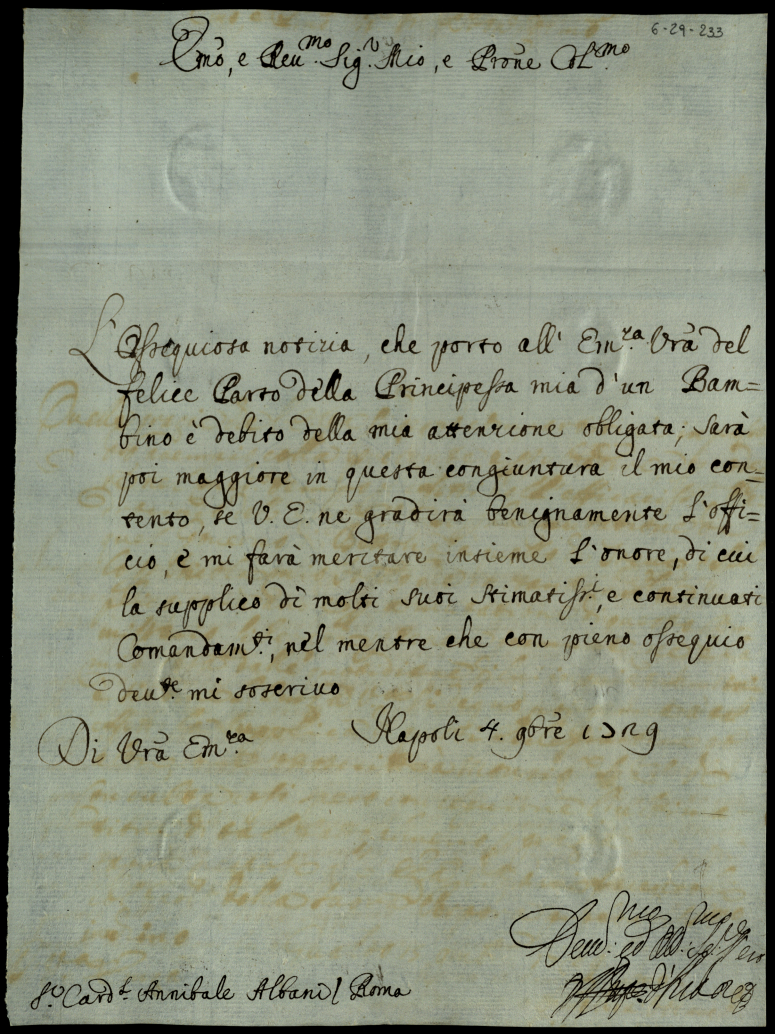 6-29-233
Emõ, e Reu.mo Sig.r Mio, e Prõne Col.mo
L'Ossequiosa notizia, che porto all' Em.za Vrã del
felice Parto della Principessa mia d'un Bam=
bino è debito della mia attenzione obligata; sarà
poi maggiore in questa congiuntura il mio con=
tento, se V. E. ne gradirà benignamente l'offi=
cio, e mi farà meritare insieme l'onore, di cui
la supplico di molti suoi stimatiss.i, e continuati
Comandam.ti, nel mentre che con pieno ossequio
deu.te mi soscriuo
Di Vrã Em.za Napoli 4. 9bre 1729
Deu.mo ed Obb.mo Ser.re vero
S.r Card.le Annibale Albani / Roma